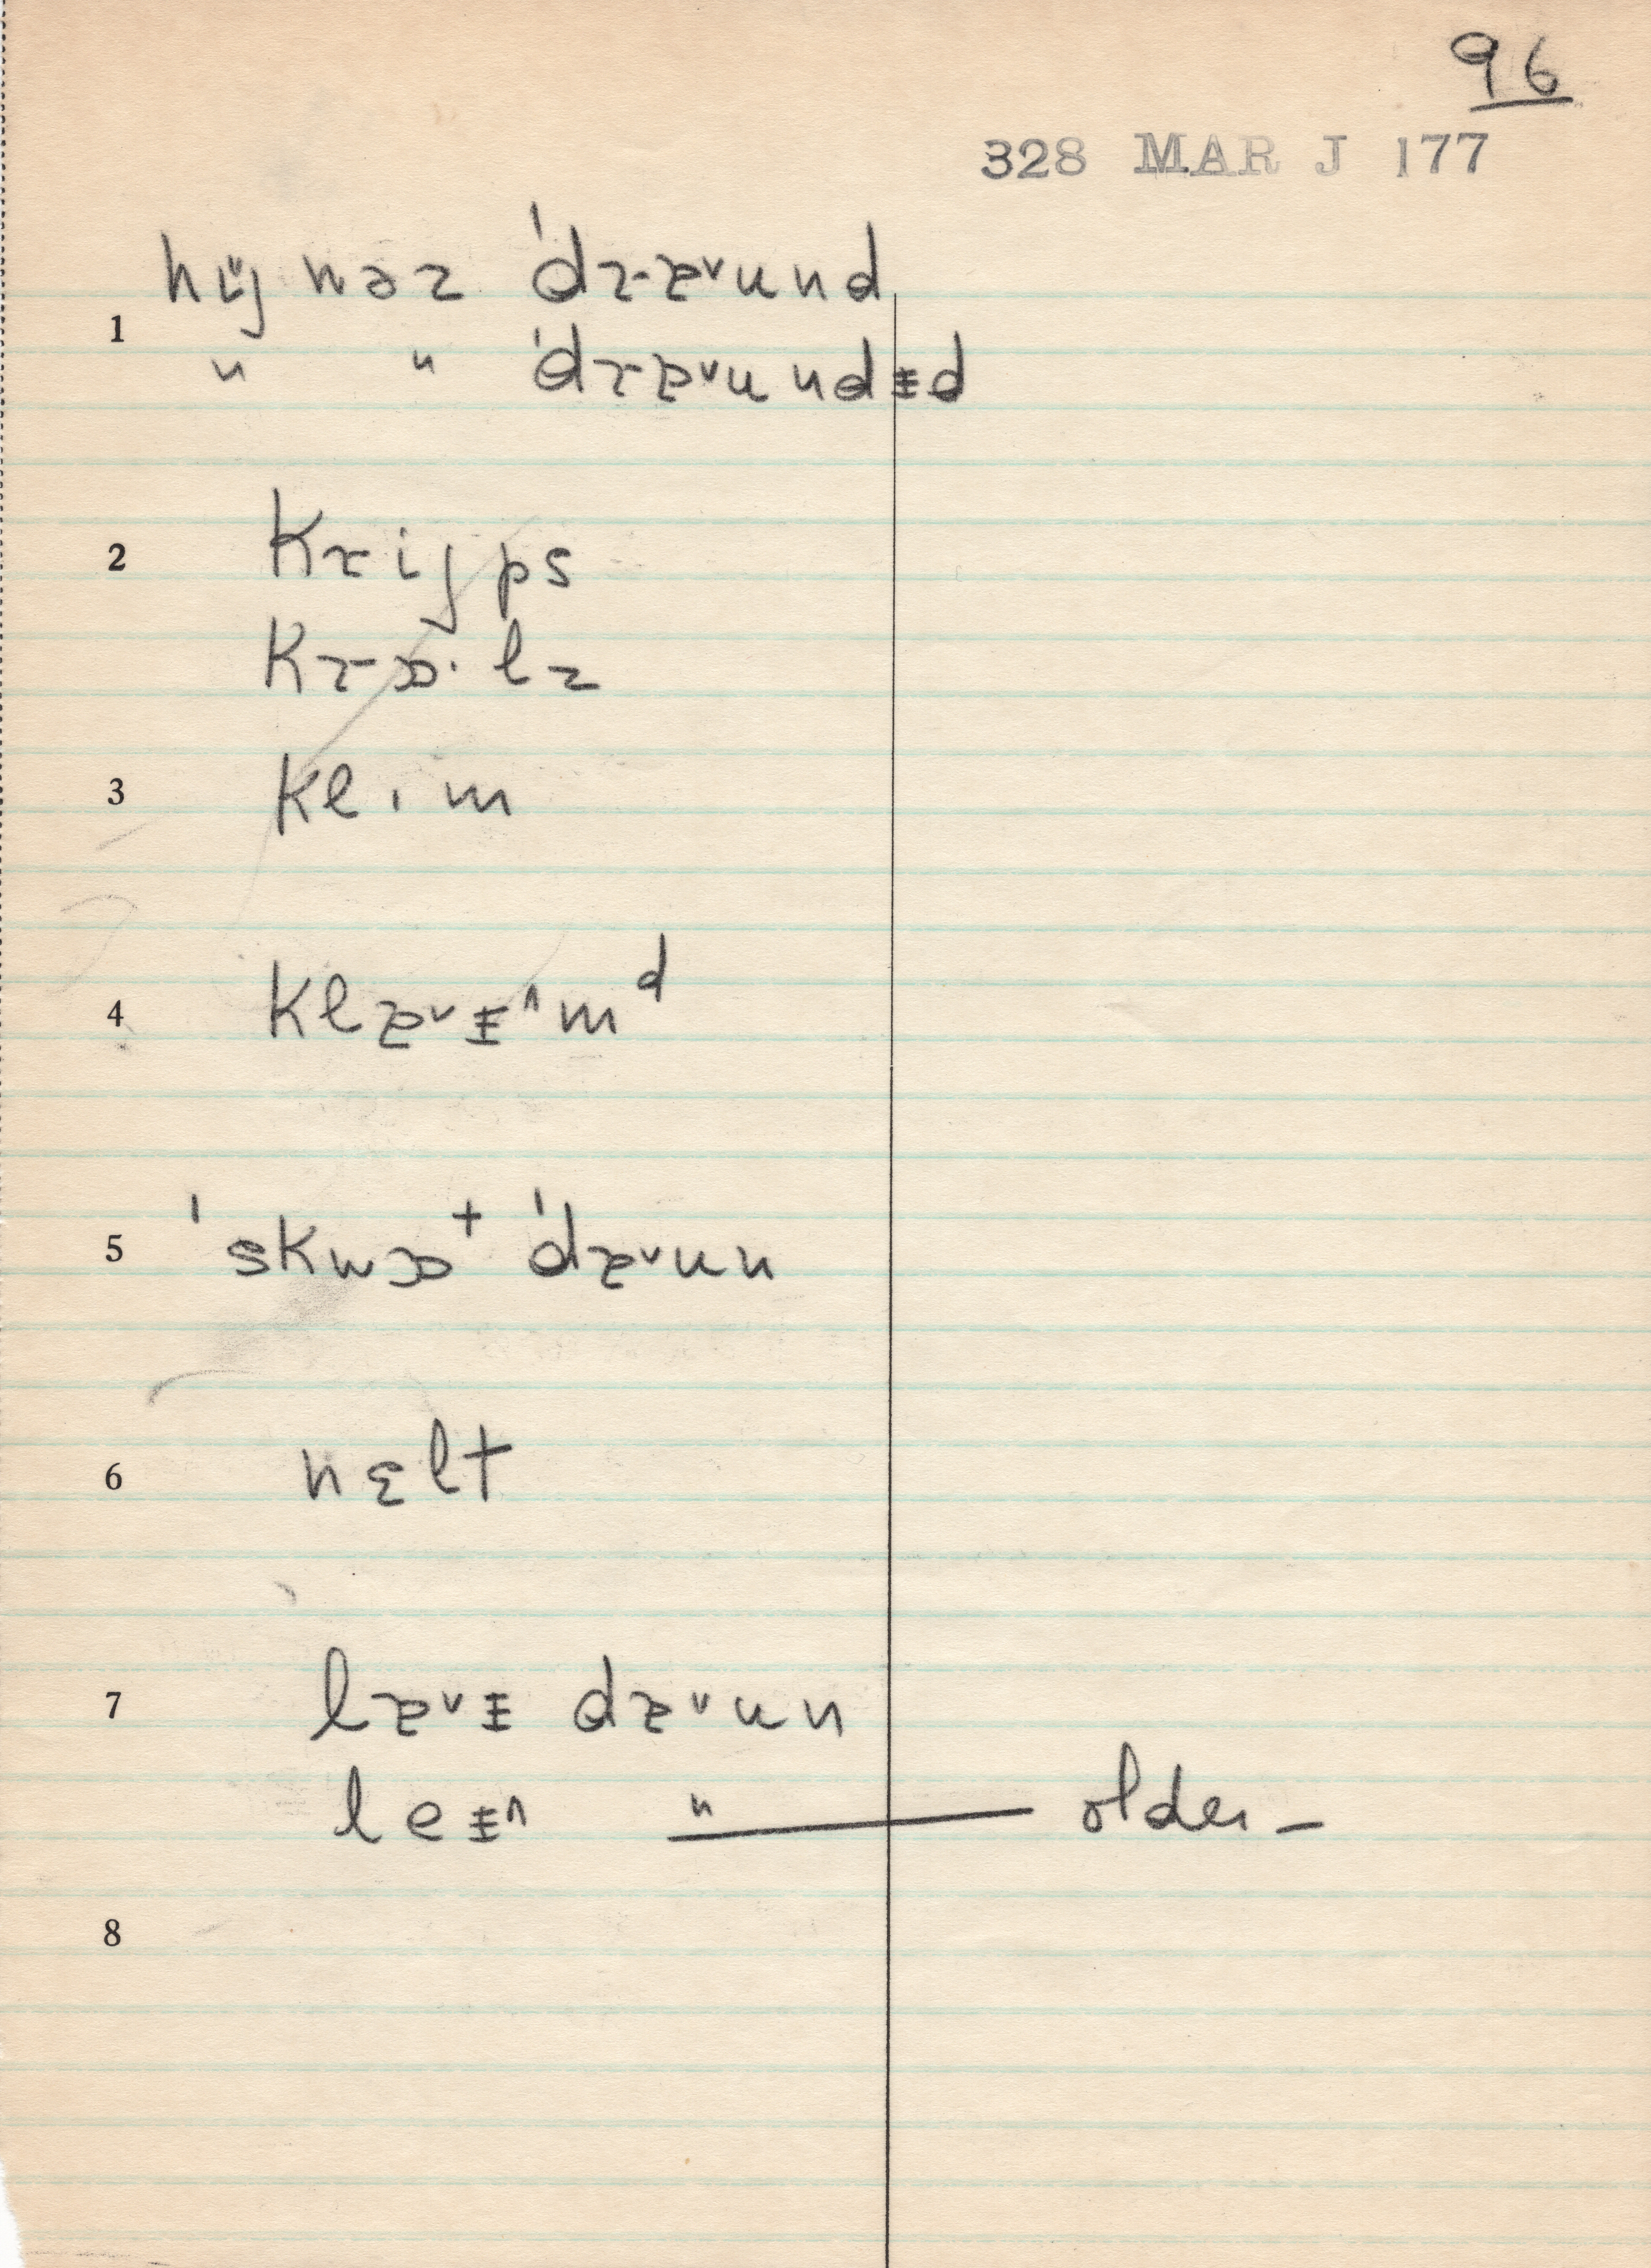 96
328 MAR J 177
hɪ̆j wəz 'drɐᵛund
1
" " 'drɐᵛundɪd
2 krijps
krɔ·lz
3 klɩm
4 klɐᵛɪ^mᵈ
5 'skwɔᵗ 'dɐᵛun
6 nɛlt
7 lɐᵛɪ dɐᵛun
leɪ^ " — older –
8